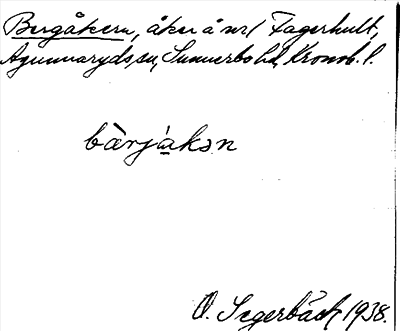 Bergåkern, åker å nr 1 Fagerhult,
Agunnaryds sn, Sunnerbo hd, Kronob. l.
bæ̀rjákən
O. Segerbäck, 1938.